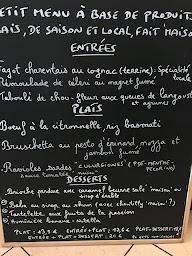 PETIT MENU A BASE DE PRODUITS
FRAIS, DE SAISON ET LOCAL, FAIT MAISON
ENTRÉES
Fagot charentais au cognac (terrine): Spécialité
locale
Rémoulade de céleri au magret fumé
Taboulé de chou-fleur aux queues de langouste
et agrumes
PLATS
Boeuf à la citronnelle, riz basmati
Bruschetta au pesto d'épinard, mozza et
jambon
Ravioles Dardes
DESSERTS
Brioche perdue au caramel beurre salé maison
Baba au sirop, au rhum (avec chantilly maison !)
Tartelette aux fruits de la passion
banane
PLAT: ENTRÉE+PLAT: PLAT+DESSERT:
ENTRÉE + PLAT + DESSERT: